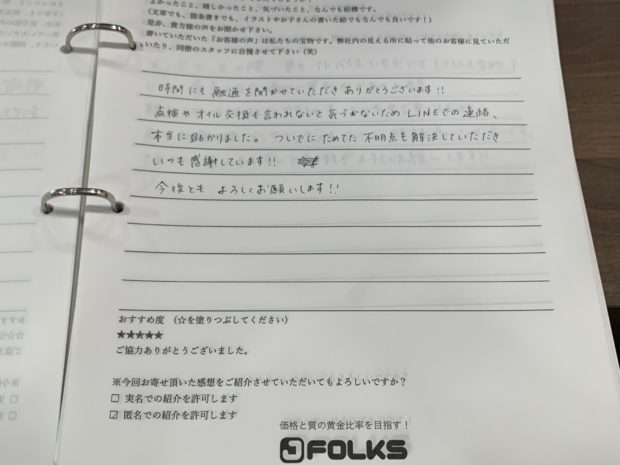 よかったこと、嬉しかったこと、気づいたこと、なんでも結構です。
(文章でも、箇条書きでも、イラストやお子さんの書いた絵でもなんでも良いです！)
是非、貴方様の声をお聞かせ下さい。
書いていただいた「お客様の声」は私たちの宝物です。弊社内の見える所に貼って他のお客様に見ていただ
いたり、同僚のスタッフに自慢させて下さい（笑）
時間にも融通を聞かせていただきありがとうございます!!
点検やオイル交換も言われないと気づかないため LINEでの連絡、
本当に助かりました。 ついでにためてた不明点も解決していただき
いつも感謝しています!!
今後とも よろしくお願いします!!
おすすめ度 （☆を塗りつぶしてください）
★★★★★
ご協力ありがとうございました。
※今回お寄せ頂いた感想をご紹介させていただいてもよろしいですか？
☐ 実名での紹介を許可します
☑ 匿名での紹介を許可します
価格と質の黄金比率を目指す！
FOLKS